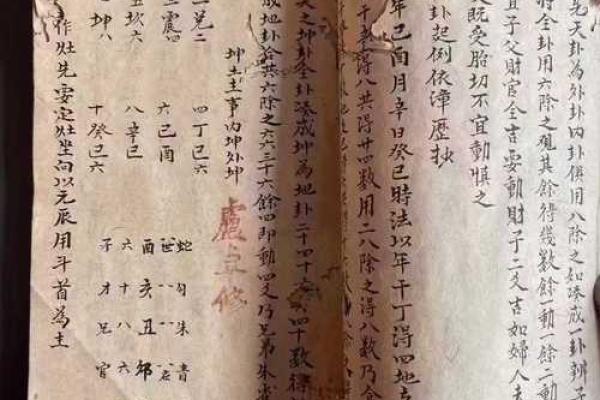 先天卦為外卦內卦俱用八除之如湊成一卦
將全卦用六除之視其餘得幾數餘一動一餘二動
宜子父財官全吉要動財子二爻吉如婦人
既受胎切不宜動慎之
卦起例依漳歷抄
年己酉月辛日癸巳時法以年干丁得四地
干辛得八共得廿四數用二八除之得八數乃
天之坤卦全卦湊成坤為地卦二十四十六四十數得
成地卦拾共六除之六六三十六餘四即動四爻乃兄弟朱雀
坤土主事內坤外坤
盧卓修
兌二
三震四
五坎六
坤八
四丁巳六
六己酉
八辛巳
十癸巳六
蛇勾朱青
世
酉亥丑卯
六十八六
子才兄官
作灶先要定灶坐向以元辰用斗首為主